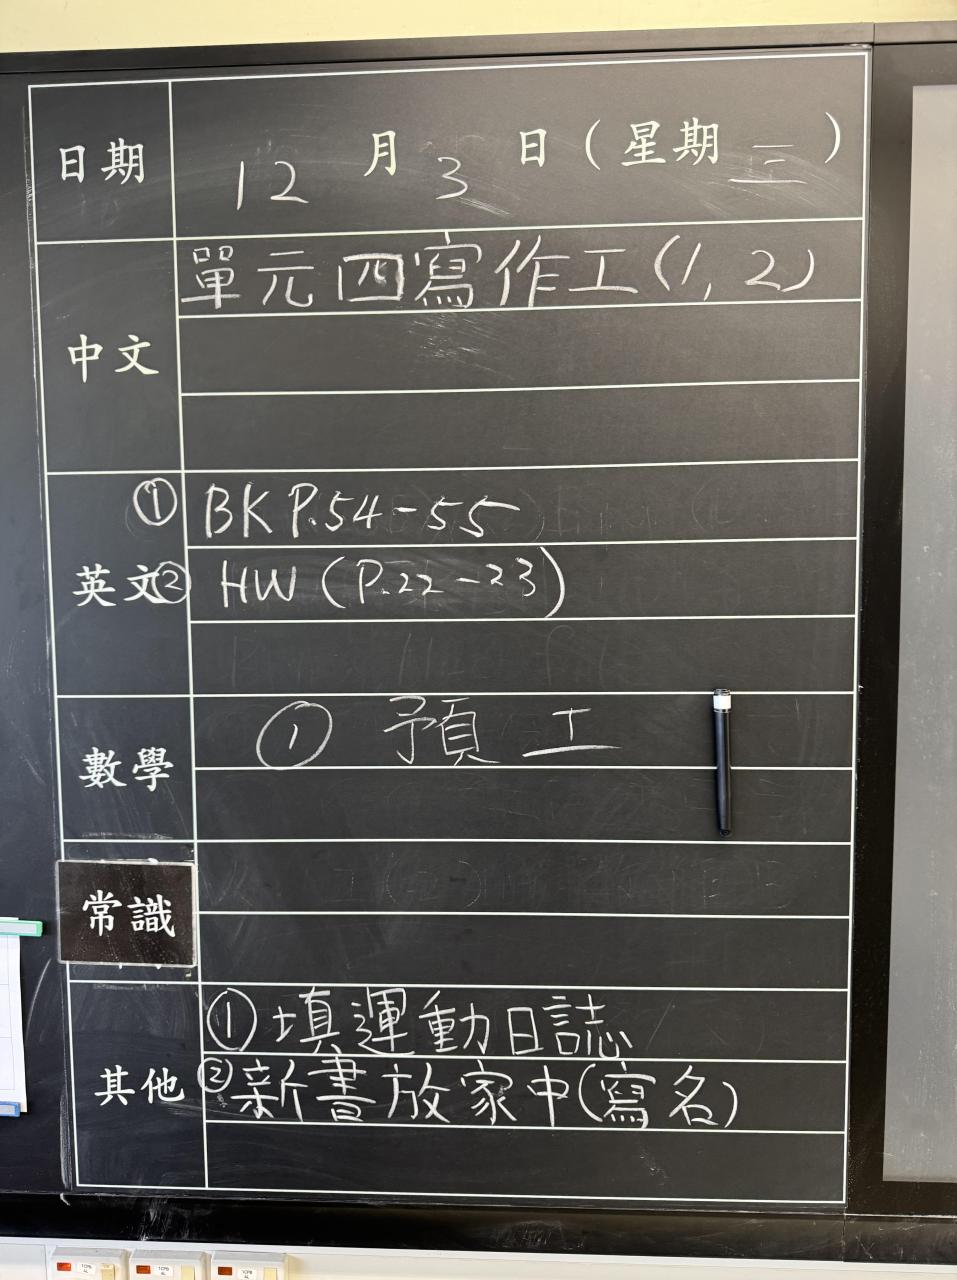 日期 12 月 3 日（星期 三 ）
中文 單元四寫作工(1, 2)
英文 ① BK P.54-55
② HW (P.22-23)
數學 ① 預工
常識
其他 ① 填運動日誌
② 新書放家中(寫名)